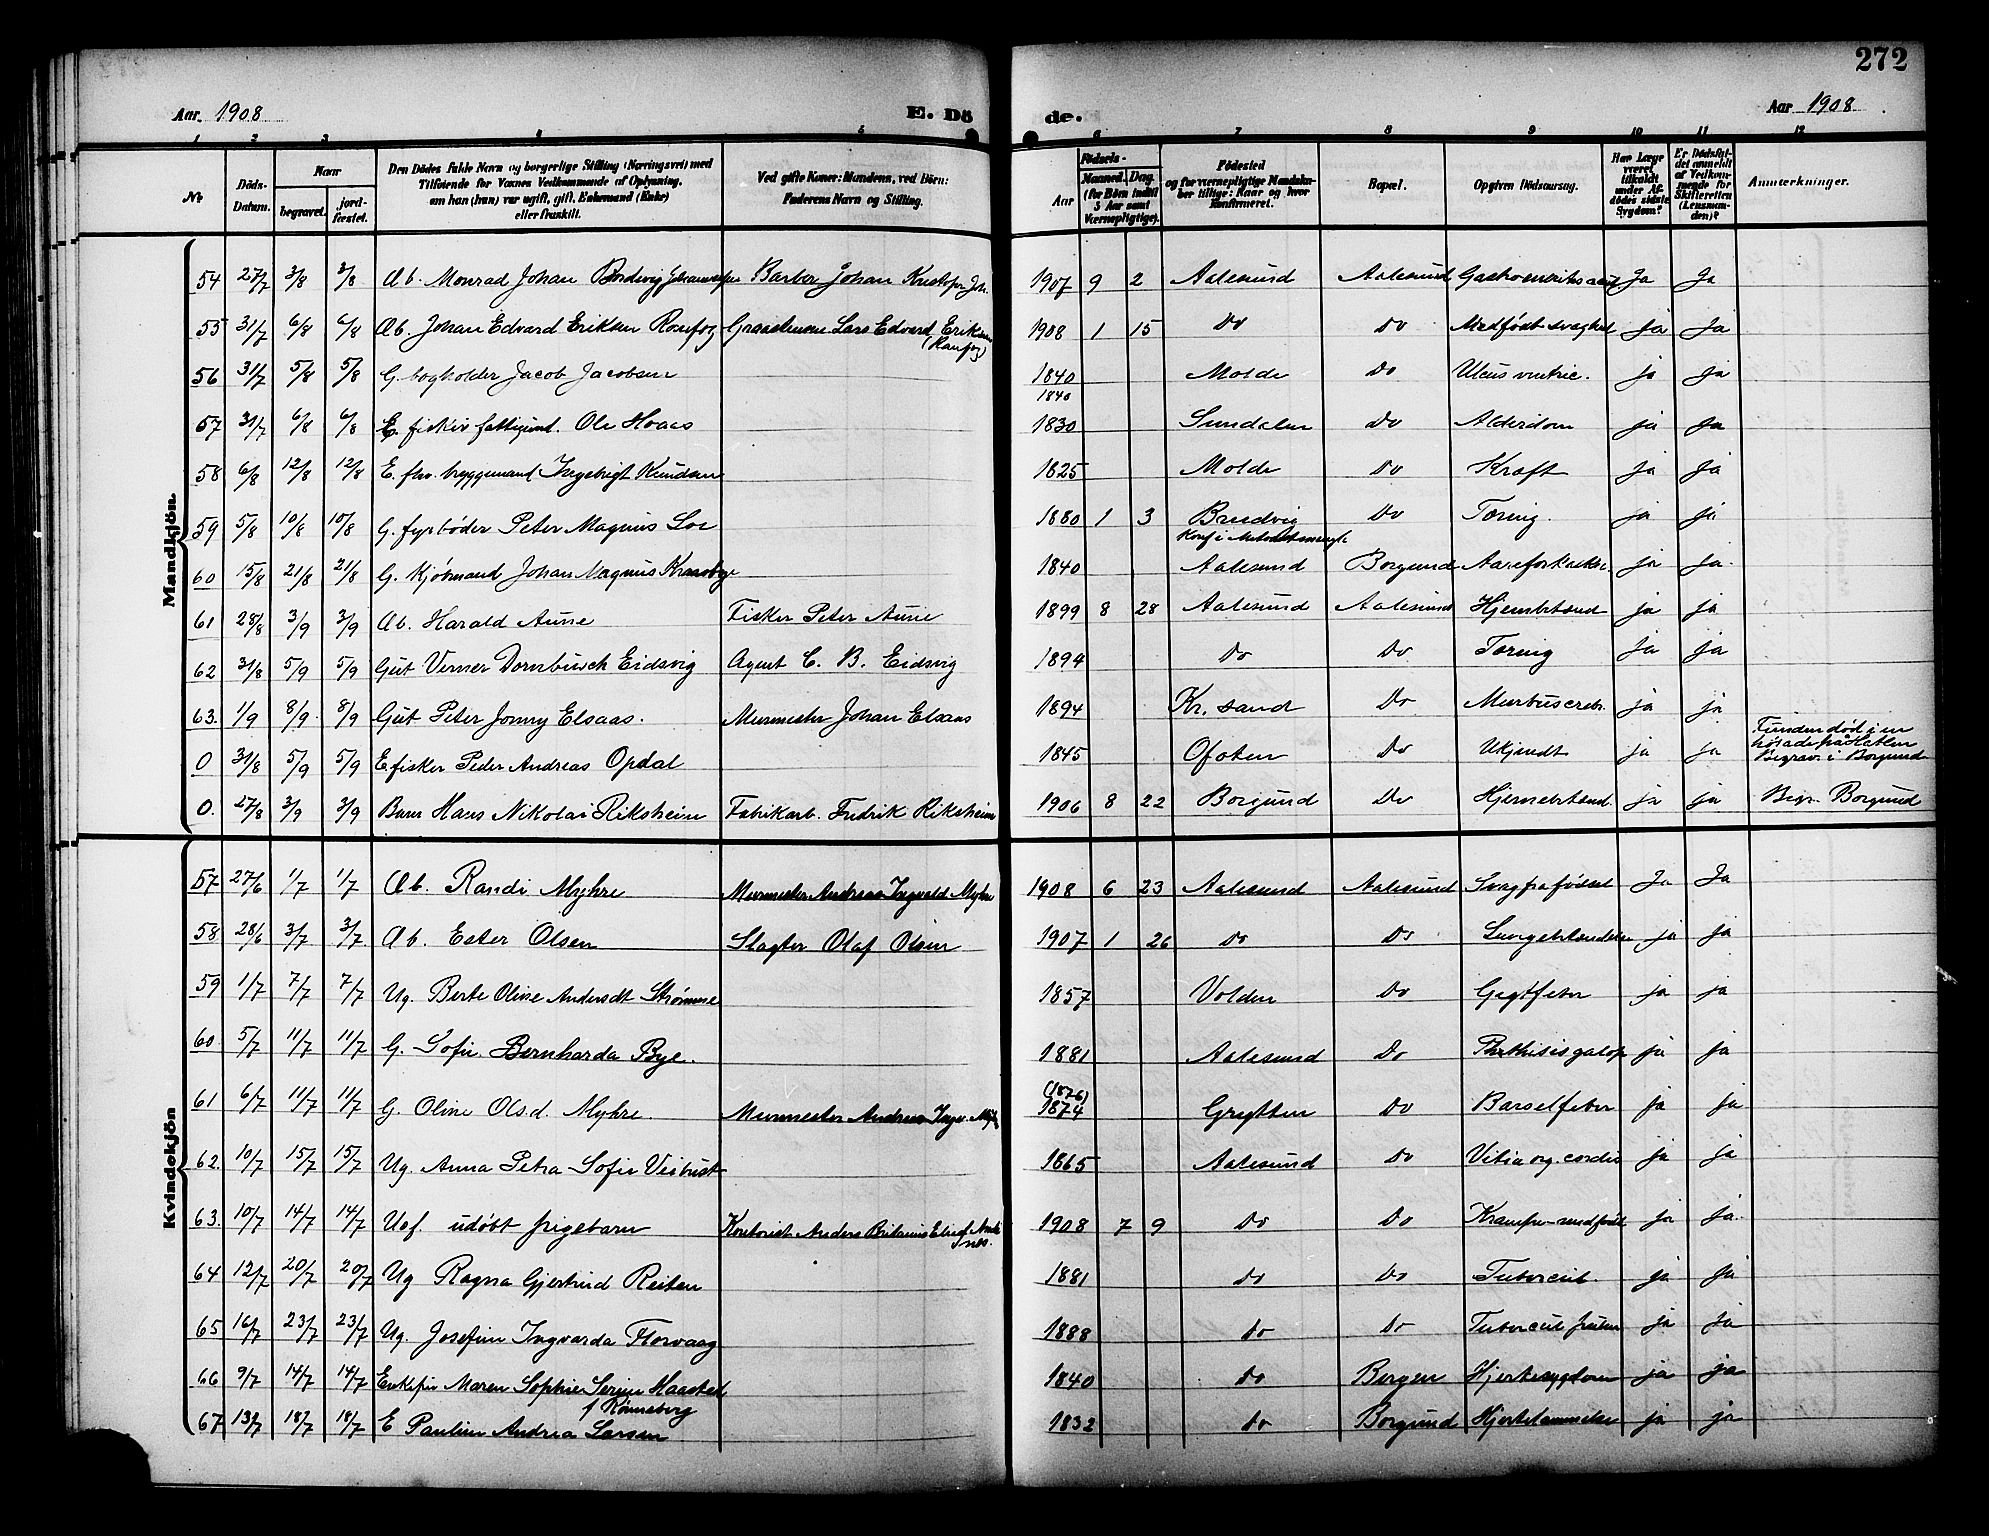 272
Aar 1908 E. Dö de. Aar 1908
1 2 3 4 5 6 7 8 9 10 11 12
No. Döds-Datum. Naar begravet. jordfæstet. Den Dödes fulde Navn og borgerlige Stilling (Næringsvei) med Tilföiende for Voxnes Vedkommende af Oplysning, om han (hun) var ugift, gift, Enkemand (Enke) eller fraskilt. Ved gifte Koner: Mandens, ved Börn: Faderens Navn og Stilling. Födsels- Aar Maaned. Dag. (for Börn indtil 5 Aar samt Værnepligtige). Födested og for værnepligtige Mandskaber tillige: Naar og hvor konfirmeret. Bopæl. Opgiven Dödsaarsag. Har Læge været tilkaldt under Afdödes sidste Sygdom? Er Dödsfaldet anmeldt af Vedkommende for Skifteretten (Lensmanden)? Anmærkninger.
Mandkjön
54 27/7 3/8 3/8 Ab. Monrad Johan Barber Johan Kristofer Joh. 1907 9 2 Aalesund Aalesund Ja Ja
55 31/7 6/8 6/8 Ab. Johan Edvard Eriksen Lars Edvard Eriksen 1908 1 15 Do Do Medfødt svaghed ja Ja
56 31/7 5/8 5/8 G. bogholder Jacob Jacobsen 1840 Molde Do Ulcus ventric. ja ja
1840
57 31/7 6/8 6/8 E. fisker fattigund. Ole Haas 1830 Sundalen Do Alderdom ja ja
58 6/8 12/8 12/8 E. fhv. bryggemand Ingebrigt Knudsen 1825 Molde Do Kræft ja ja
59 5/8 10/8 10/8 G. fyrbøder Peter Magnus Loe 1880 1 3 Brudvig Do Tæring. ja ja
60 15/8 21/8 21/8 G. Kjøbmand Johan Magnus 1840 Aalesund Borgund Aareforkalkn. ja ja.
61 28/8 3/9 3/9 Ab. Harald Aune Fisker Peter Aune 1899 8 28 Aalesund Aalesund ja ja
62 31/8 5/9 5/9 Gut Verner Dornbusch Eidsvig Agent C. B. Eidsvig 1894 Do Do Tæring Ja ja
63. 1/9 8/9 8/9 Gut Peter Jonny Elsaas. Murmester Johan Elsaas 1894 Kr. sand Do ja ja
0 31/8 5/9 5/9 E fisker Peder Andreas Opdal 1845 Ofoten Do Ukjendt ja ja Funden død i en
Begrav. i Borgund
0. 27/8 3/9 3/9 Barn Hans Nikolai Riksheim Fabrikarb. Fredrik Riksheim 1906 8 22 Borgund Do ja ja Begr. Borgund
Kvindekjön
57 27/6 1/7 1/7 Ab. Randi Myhre Murmester Andreas Ingvald Myhre 1908 6 23 Aalesund Aalesund Svag fra fødsel Ja Ja
58 28/6 3/7 3/7 Ab. Ester Olsen Slagter Olaf Olsen 1907 1 26 Do Do Lungebetændelse ja ja
59 1/7 7/7 7/7 Ug. Berte Oline Andersdt Strømme 1857 Volden Do Gigtfeber ja ja
60 5/7 11/7 11/7 G. Sofie Bernharda Bye. 1881 Aalesund Do Phthisis galop ja ja
(1876)
61 6/7 11/7 11/7 G. Oline Olsd. Myhre. Murmester Andreas Ingv. Myh 1874 Grytten Do Barselfeber ja ja
62. 10/7 15/7 15/7 Ug. Anna Petra Sofie Veibust 1865 Aalesund Do Vitia org. cordis ja ja
63. 10/7 14/7 14/7 Uef. udøbt pigebarn Kontorist Anders 1908 7 9 Do Do ja ja.
64 12/7 20/7 20/7 Ug Ragna Gjertrud Reiten 1881 do Do Tubercul. ja ja
65 16/7 23/7 23/7 Ug. Josefine Ingvarda Florvaag 1888 do Do Tubercul ja ja
66 9/7 14/7 14/7 Enkefru Maren Sophie Serine Haasted 1840 do Bergen Hjertesygdom ja ja
f Rønneberg
67 13/7 18/7 18/7 E Pauline Andrea Larsen 1832 do Borgund Hjertelammelse ja ja